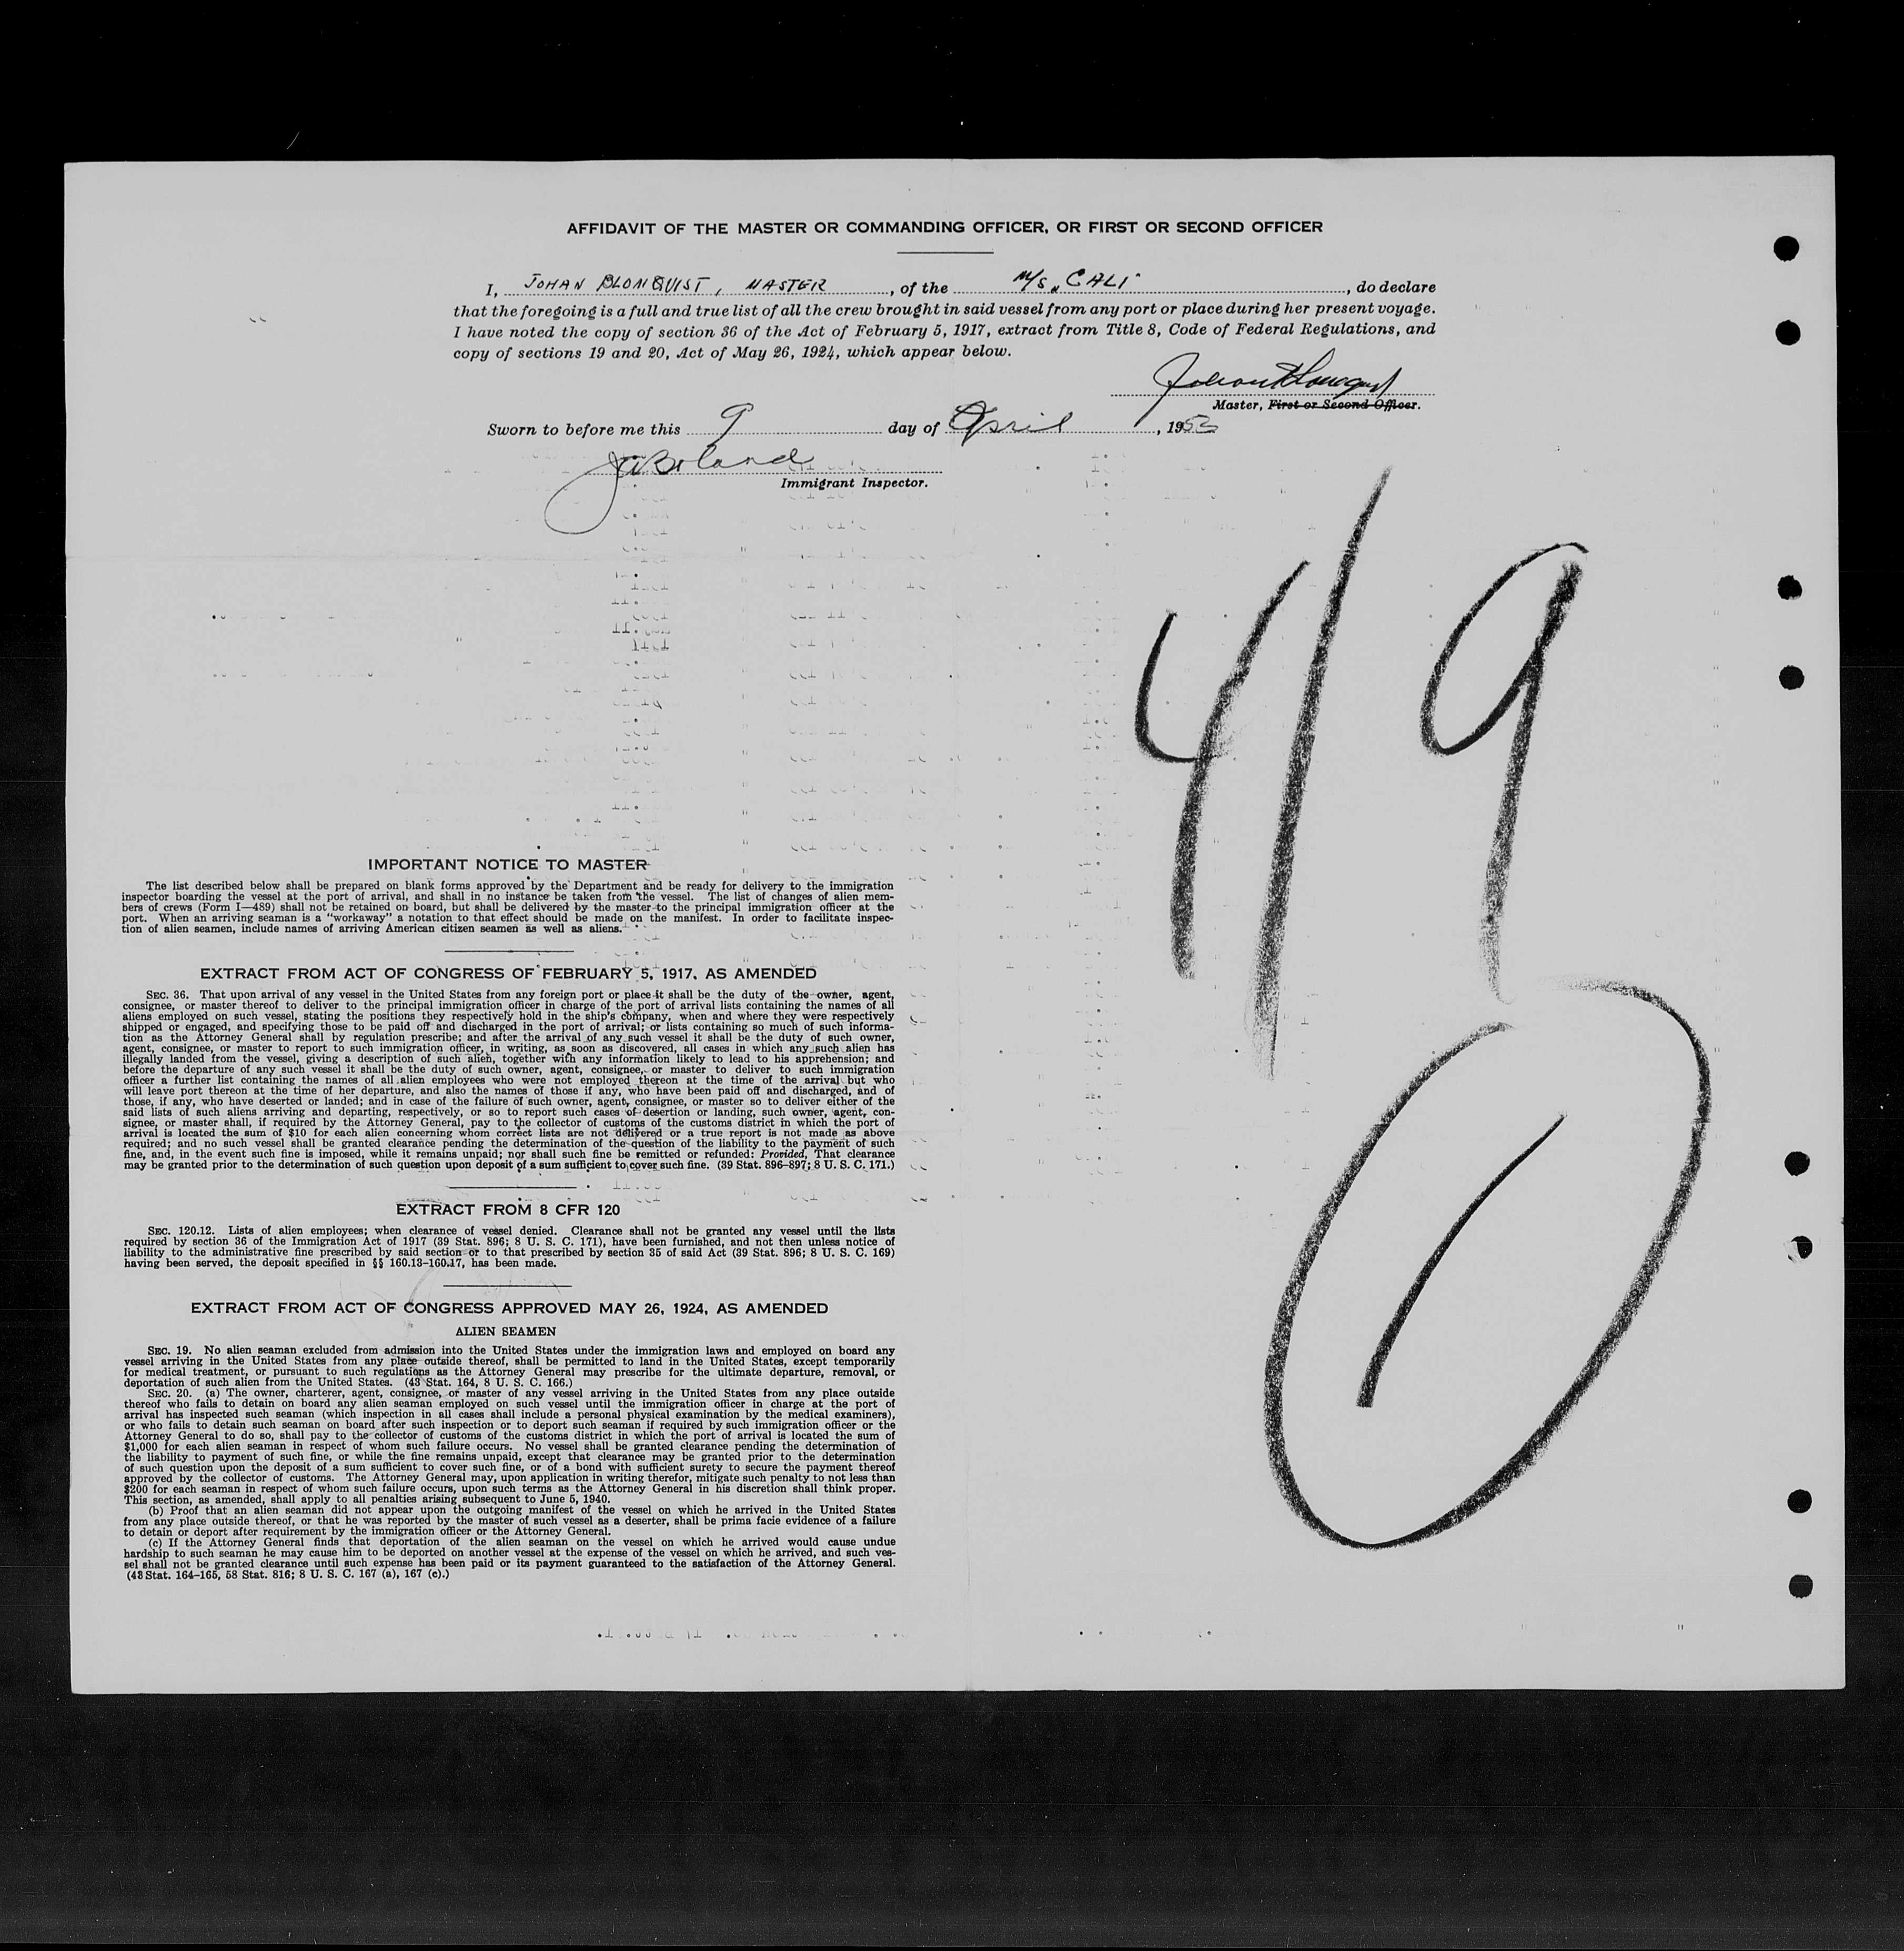 AFFIDAVIT OF THE MASTER OR COMMANDING OFFICER, OR FIRST OR SECOND OFFICER
I, JOHAN BLOMQUIST, MASTER, of the M/S „CALI", do declare
that the foregoing is a full and true list of all the crew brought in said vessel from any port or place during her present voyage.
I have noted the copy of section 36 of the Act of February 5, 1917, extract from Title 8, Code of Federal Regulations, and
copy of sections 19 and 20, Act of May 26, 1924, which appear below.
Johan Blomquist
Master, First or Second Officer.
Sworn to before me this 9 day of April, 1953
JABoland
Immigrant Inspector.
4/9
1
IMPORTANT NOTICE TO MASTER
The list described below shall be prepared on blank forms approved by the Department and be ready for delivery to the immigration
inspector boarding the vessel at the port of arrival, and shall in no instance be taken from the vessel. The list of changes of alien mem-
bers of crews (Form I—489) shall not be retained on board, but shall be delivered by the master to the principal immigration officer at the
port. When an arriving seaman is a "workaway" a notation to that effect should be made on the manifest. In order to facilitate inspec-
tion of alien seamen, include names of arriving American citizen seamen as well as aliens.
EXTRACT FROM ACT OF CONGRESS OF FEBRUARY 5, 1917, AS AMENDED
SEC. 36. That upon arrival of any vessel in the United States from any foreign port or place it shall be the duty of the owner, agent,
consignee, or master thereof to deliver to the principal immigration officer in charge of the port of arrival lists containing the names of all
aliens employed on such vessel, stating the positions they respectively hold in the ship's company, when and where they were respectively
shipped or engaged, and specifying those to be paid off and discharged in the port of arrival; or lists containing so much of such informa-
tion as the Attorney General shall by regulation prescribe; and after the arrival of any such vessel it shall be the duty of such owner,
agent, consignee, or master to report to such immigration officer, in writing, as soon as discovered, all cases in which any such alien has
illegally landed from the vessel, giving a description of such alien, together with any information likely to lead to his apprehension; and
before the departure of any such vessel it shall be the duty of such owner, agent, consignee, or master to deliver to such immigration
officer a further list containing the names of all alien employees who were not employed thereon at the time of the arrival but who
will leave port thereon at the time of her departure, and also the names of those if any, who have been paid off and discharged, and of
those, if any, who have deserted or landed; and in case of the failure of such owner, agent, consignee, or master so to deliver either of the
said lists of such aliens arriving and departing, respectively, or so to report such cases of desertion or landing, such owner, agent, con-
signee, or master shall, if required by the Attorney General, pay to the collector of customs of the customs district in which the port of
arrival is located the sum of $10 for each alien concerning whom correct lists are not delivered or a true report is not made as above
required; and no such vessel shall be granted clearance pending the determination of the question of the liability to the payment of such
fine, and, in the event such fine is imposed, while it remains unpaid; nor shall such fine be remitted or refunded: Provided, That clearance
may be granted prior to the determination of such question upon deposit of a sum sufficient to cover such fine. (39 Stat. 896-897; 8 U. S. C. 171.)
EXTRACT FROM 8 CFR 120
SEC. 120.12. Lists of alien employees; when clearance of vessel denied. Clearance shall not be granted any vessel until the lists
required by section 36 of the Immigration Act of 1917 (39 Stat. 896; 8 U. S. C. 171), have been furnished, and not then unless notice of
liability to the administrative fine prescribed by said section or to that prescribed by section 35 of said Act (39 Stat. 896; 8 U. S. C. 169)
having been served, the deposit specified in §§ 160.13-160.17, has been made.
EXTRACT FROM ACT OF CONGRESS APPROVED MAY 26, 1924, AS AMENDED
ALIEN SEAMEN
SEC. 19. No alien seaman excluded from admission into the United States under the immigration laws and employed on board any
vessel arriving in the United States from any place outside thereof, shall be permitted to land in the United States, except temporarily
for medical treatment, or pursuant to such regulations as the Attorney General may prescribe for the ultimate departure, removal, or
deportation of such alien from the United States. (43 Stat. 164, 8 U. S. C. 166.)
SEC. 20. (a) The owner, charterer, agent, consignee, or master of any vessel arriving in the United States from any place outside
thereof who fails to detain on board any alien seaman employed on such vessel until the immigration officer in charge at the port of
arrival has inspected such seaman (which inspection in all cases shall include a personal physical examination by the medical examiners),
or who fails to detain such seaman on board after such inspection or to deport such seaman if required by such immigration officer or the
Attorney General to do so, shall pay to the collector of customs of the customs district in which the port of arrival is located the sum of
$1,000 for each alien seaman in respect of whom such failure occurs. No vessel shall be granted clearance pending the determination of
the liability to payment of such fine, or while the fine remains unpaid, except that clearance may be granted prior to the determination
of such question upon the deposit of a sum sufficient to cover such fine, or of a bond with sufficient surety to secure the payment thereof
approved by the collector of customs. The Attorney General may, upon application in writing therefor, mitigate such penalty to not less than
$200 for each seaman in respect of whom such failure occurs, upon such terms as the Attorney General in his discretion shall think proper.
This section, as amended, shall apply to all penalties arising subsequent to June 5, 1940.
(b) Proof that an alien seaman did not appear upon the outgoing manifest of the vessel on which he arrived in the United States
from any place outside thereof, or that he was reported by the master of such vessel as a deserter, shall be prima facie evidence of a failure
to detain or deport after requirement by the immigration officer or the Attorney General.
(c) If the Attorney General finds that deportation of the alien seaman on the vessel on which he arrived would cause undue
hardship to such seaman he may cause him to be deported on another vessel at the expense of the vessel on which he arrived, and such ves-
sel shall not be granted clearance until such expense has been paid or its payment guaranteed to the satisfaction of the Attorney General.
(43 Stat. 164-165, 58 Stat. 816; 8 U. S. C. 167 (a), 167 (c).)